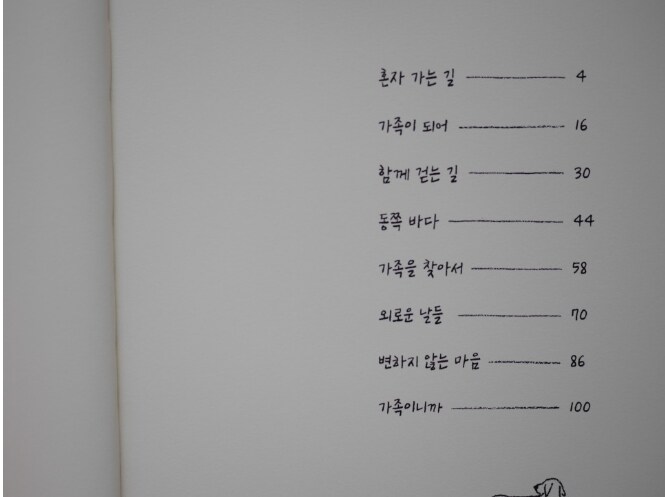 혼자 가는 길 4
가족이 되어 16
함께 걷는 길 30
동쪽 바다 44
가족을 찾아서 58
외로운 날들 70
변하지 않는 마음 86
가족이니까 100